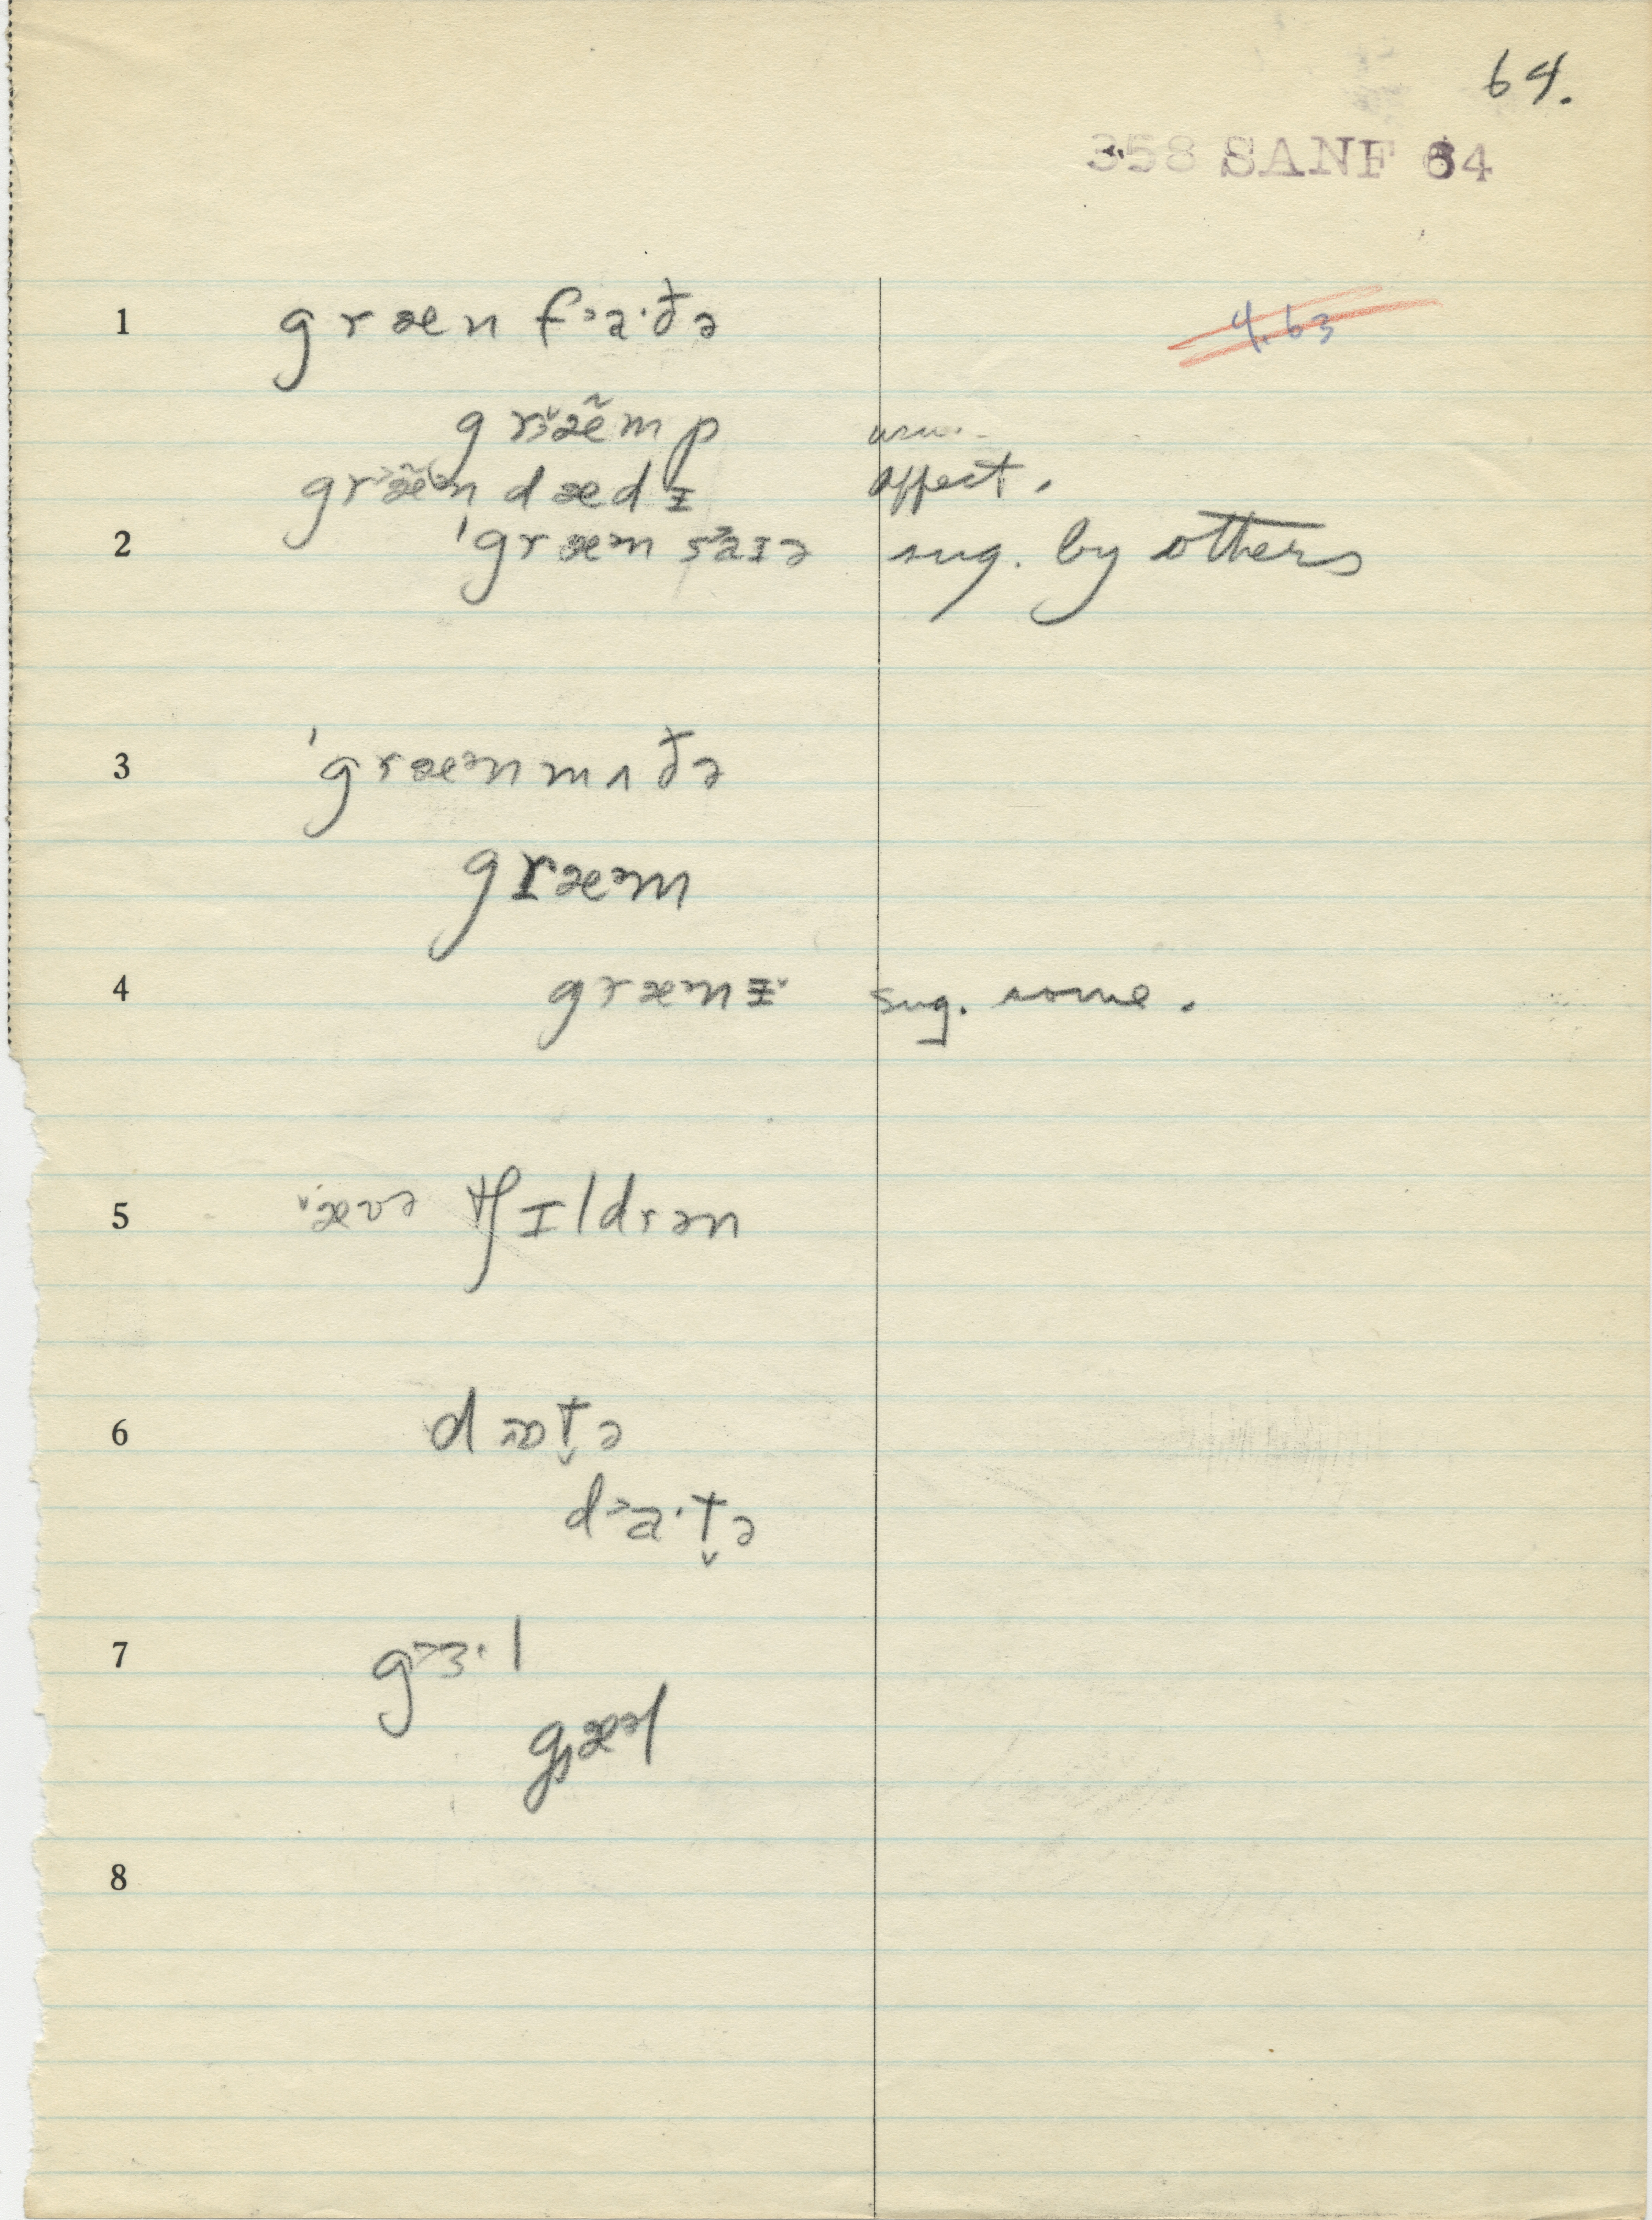 64.
358 SANF 64
1 græn f˃a·ðə
4.63
græ̃mp usu.
græ̃ᵊn dædɪ affect.
2 ˈgræᵊm sˈaɪə sug. by others
3 ˈgræᵊn mʌðə
græᵊm
4 græᵊnɪ sug. some.
5 ævə tʃɪldrən
6 dɔɒt̬ə
d˃a·t̬ə
7 g˃ɜ·l
gæᵊl
8